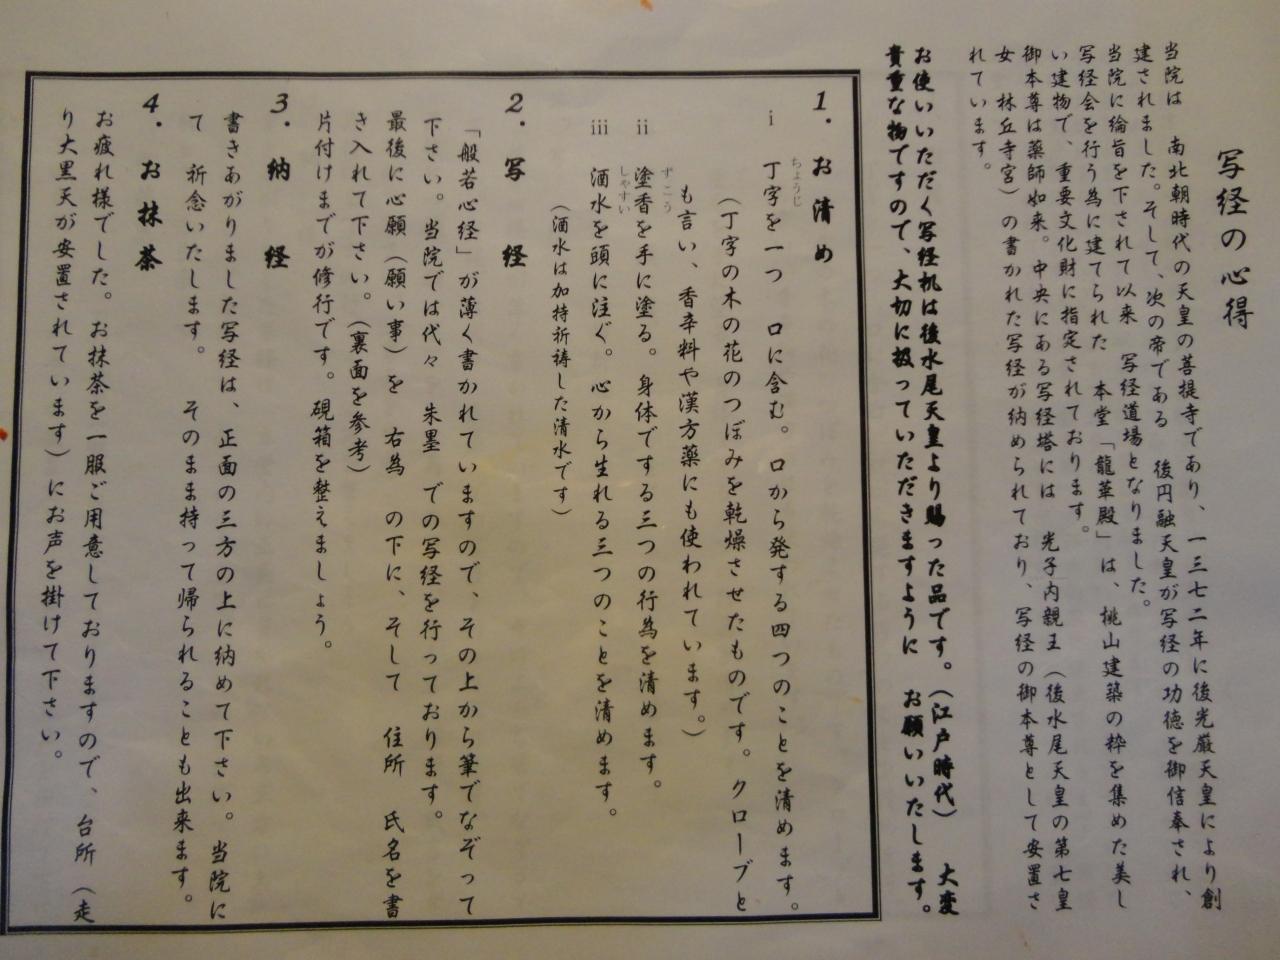 写経の心得
当院は　南北朝時代の天皇の菩提寺であり、一三七二年に後光厳天皇により創
建されました。そして、次の帝である　後円融天皇が写経の功徳を御信奉され、
当院に綸旨を下されて以来　写経道場となりました。
写経会を行う為に建てられた　本堂「龍華殿」は、桃山建築の粋を集めた美し
い建物で、重要文化財に指定されております。
御本尊は薬師如来。中央にある写経塔には　光子内親王（後水尾天皇の第七皇
女　林丘寺宮）の書かれた写経が納められており、写経の御本尊として安置さ
れています。
お使いいただく写経机は後水尾天皇より賜った品です。（江戸時代）　大変
貴重な物ですので、大切に扱っていただきますように　お願いいたします。
1．お清め
ⅰ　丁字を一つ　口に含む。口から発する四つのことを清めます。
ちょうじ
（丁字の木の花のつぼみを乾燥させたものです。クローブと
も言い、香辛料や漢方薬にも使われています。）
ⅱ　塗香を手に塗る。身体でする三つの行為を清めます。
ずこう
ⅲ　洒水を頭に注ぐ。心から生れる三つのことを清めます。
しゃすい
（洒水は加持祈祷した清水です）
2．写　経
「般若心経」が薄く書かれていますので、その上から筆でなぞって
下さい。当院では代々　朱墨　での写経を行っております。
最後に心願（願い事）を　右為　の下に、そして　住所　氏名を書
き入れて下さい。（裏面を参考）
片付けまでが修行です。硯箱を整えましょう。
3．納　経
書きあがりました写経は、正面の三方の上に納めて下さい。当院に
て　祈念いたします。　そのまま持って帰られることも出来ます。
4．お抹茶
お疲れ様でした。お抹茶を一服ご用意しておりますので、台所（走
り大黒天が安置されています）にお声を掛けて下さい。